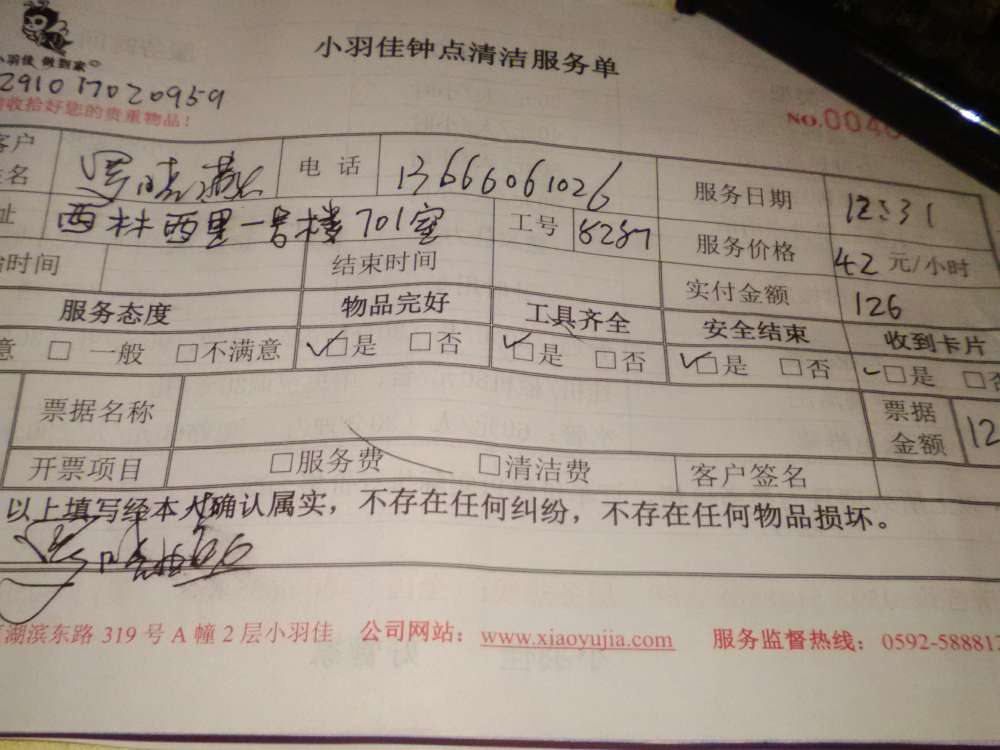 小羽佳钟点清洁服务单
小羽佳 做到家
291017020959
收拾好您的贵重物品!
NO.004
客户姓名 电话 13666061026 服务日期 12.31
址 西林西里一号楼701室 工号 8287 服务价格 42 元/小时
时间 结束时间 实付金额 126
服务态度 物品完好 工具齐全 安全结束 收到卡片
意 □ 一般 □不满意 ✓□是 □否 ✓□是 □否 ✓□是 □否 ✓□是 □否
票据名称 票据金额 12
开票项目 □服务费 □清洁费 客户签名
以上填写经本人确认属实，不存在任何纠纷，不存在任何物品损坏。
湖滨东路 319 号 A 幢 2 层小羽佳 公司网站：www.xiaoyujia.com 服务监督热线：0592-588812